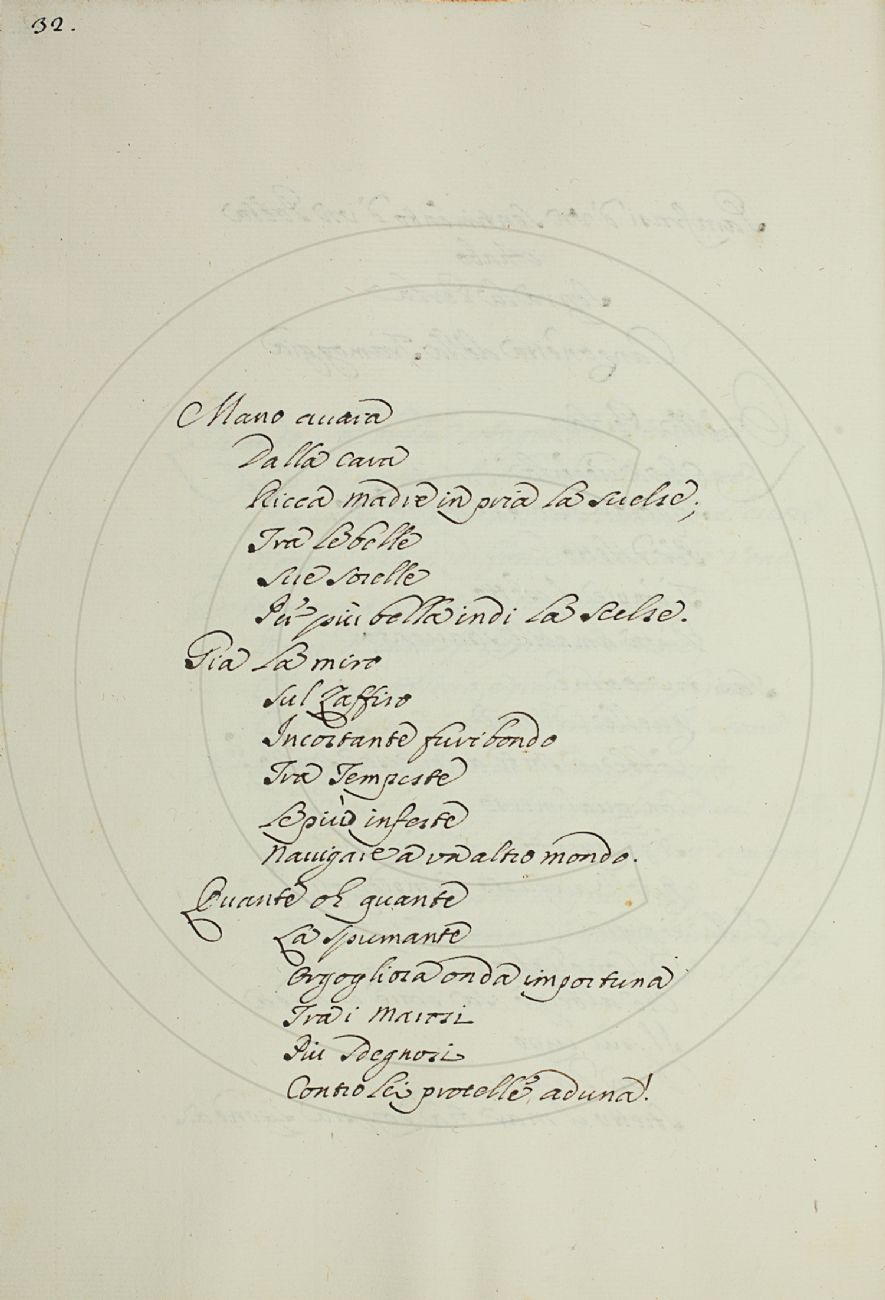 32.
Mano avara
Dalla cara
Ricca madre in pria la svelse;
Tra le belle
Sue sorelle
Più più bella indi la scelse.
Già la miro
Sul Zaffiro
Incostante furibondo
Tra Tempeste
Le più infeste
Navigare a un altro mondo.
Quante oh quante
La spumante
Orgogliosa onda importuna
Tra i Marosi
Più sdegnosi
Contro lei procelle aduna!